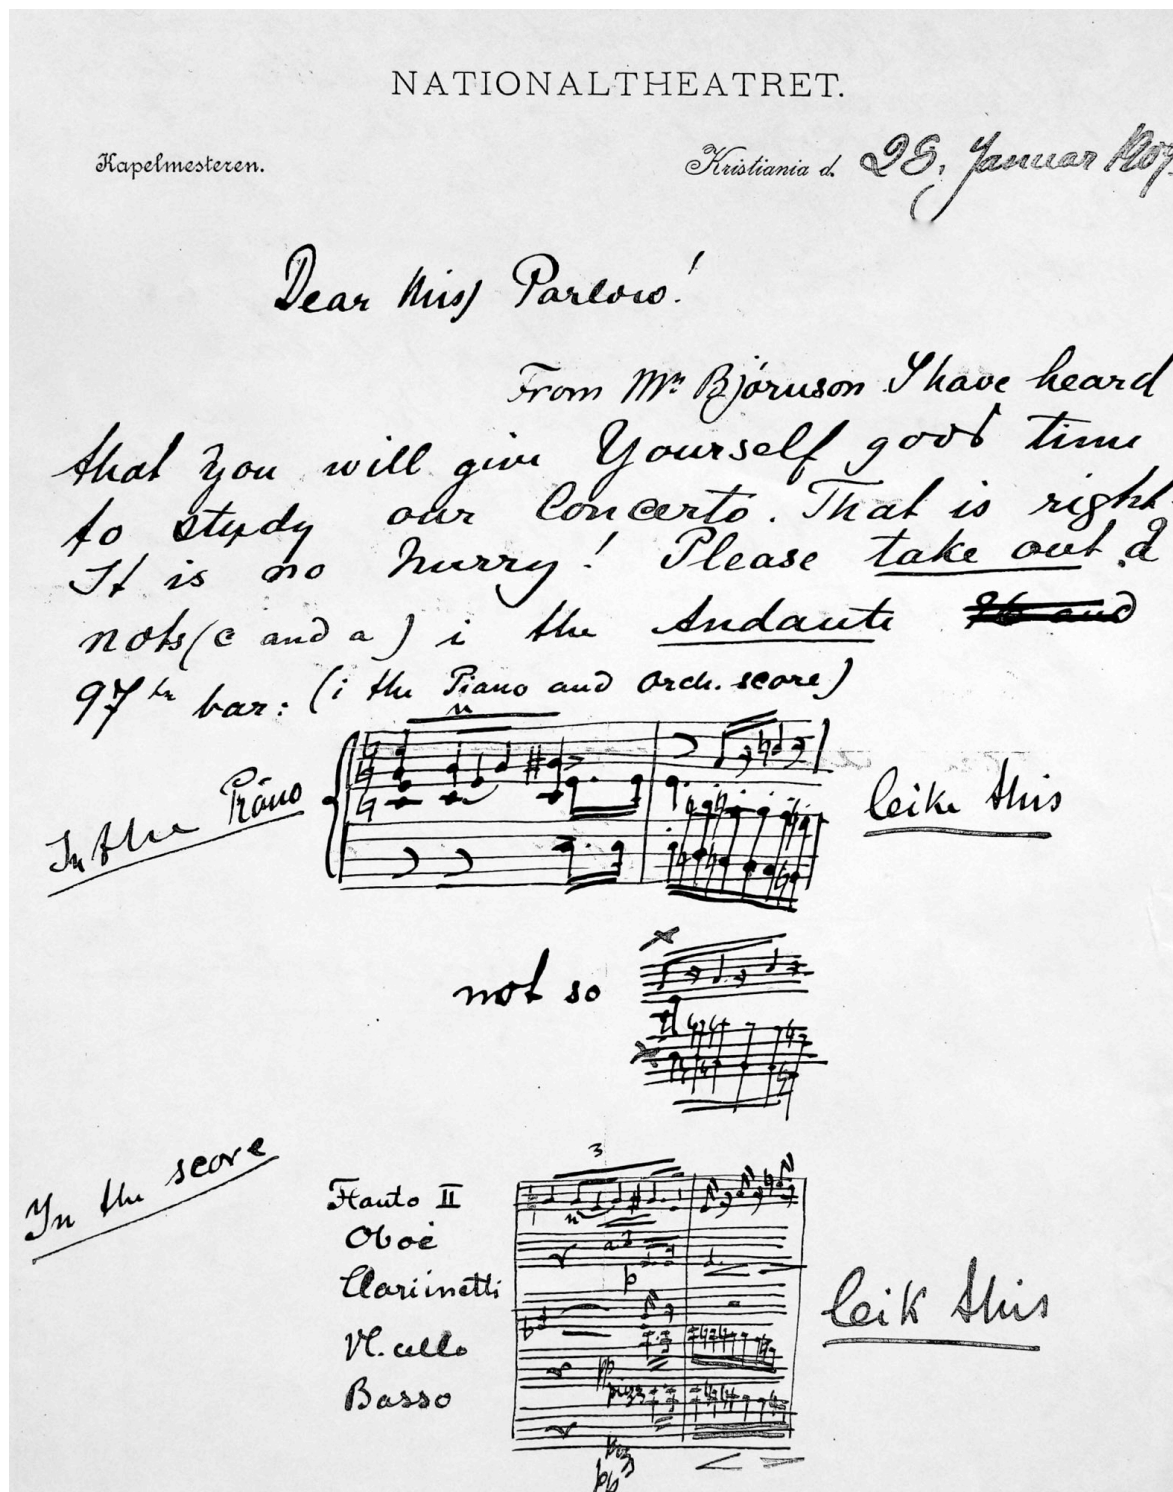 NATIONALTHEATRET.
Kapelmesteren.
Kristiania d. 28. Januar 1909.
Dear Miss Parlow!
From Mr. Bjørnson I have heard
that You will give Yourself good time
to study our Concerto. That is right
It is no hurry! Please take out 2
nots (c and a) i the Andante
97th bar: (i the Piano and Orch. score)
In the Piano
leike this
not so
In the score
3
Flauto II
Oboe
a 2
p
Clarinetti
leik this
Vl. cello
pp
pizz
Basso
pizz
pp